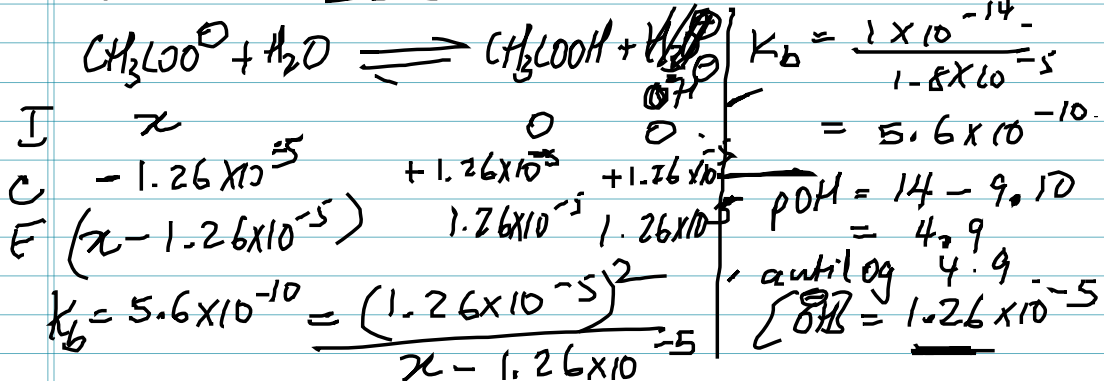 CH₃COO⊖ + H₂O ⇌ CH₃COOH + OH⊖
I x 0 0
C - 1.26 x 10⁻⁵ + 1.26 x 10⁻⁵ + 1.26 x 10⁻⁵
E (x - 1.26 x 10⁻⁵) 1.26 x 10⁻⁵ 1.26 x 10⁻⁵
K_b = 5.6 x 10⁻¹⁰ = (1.26 x 10⁻⁵)² / x - 1.26 x 10⁻⁵
K_b = 1 x 10⁻¹⁴ / 1.8 x 10⁻⁵
= 5.6 x 10⁻¹⁰
pOH = 14 - 9.10
= 4.9
antilog 4.9
[OH] = 1.26 x 10⁻⁵